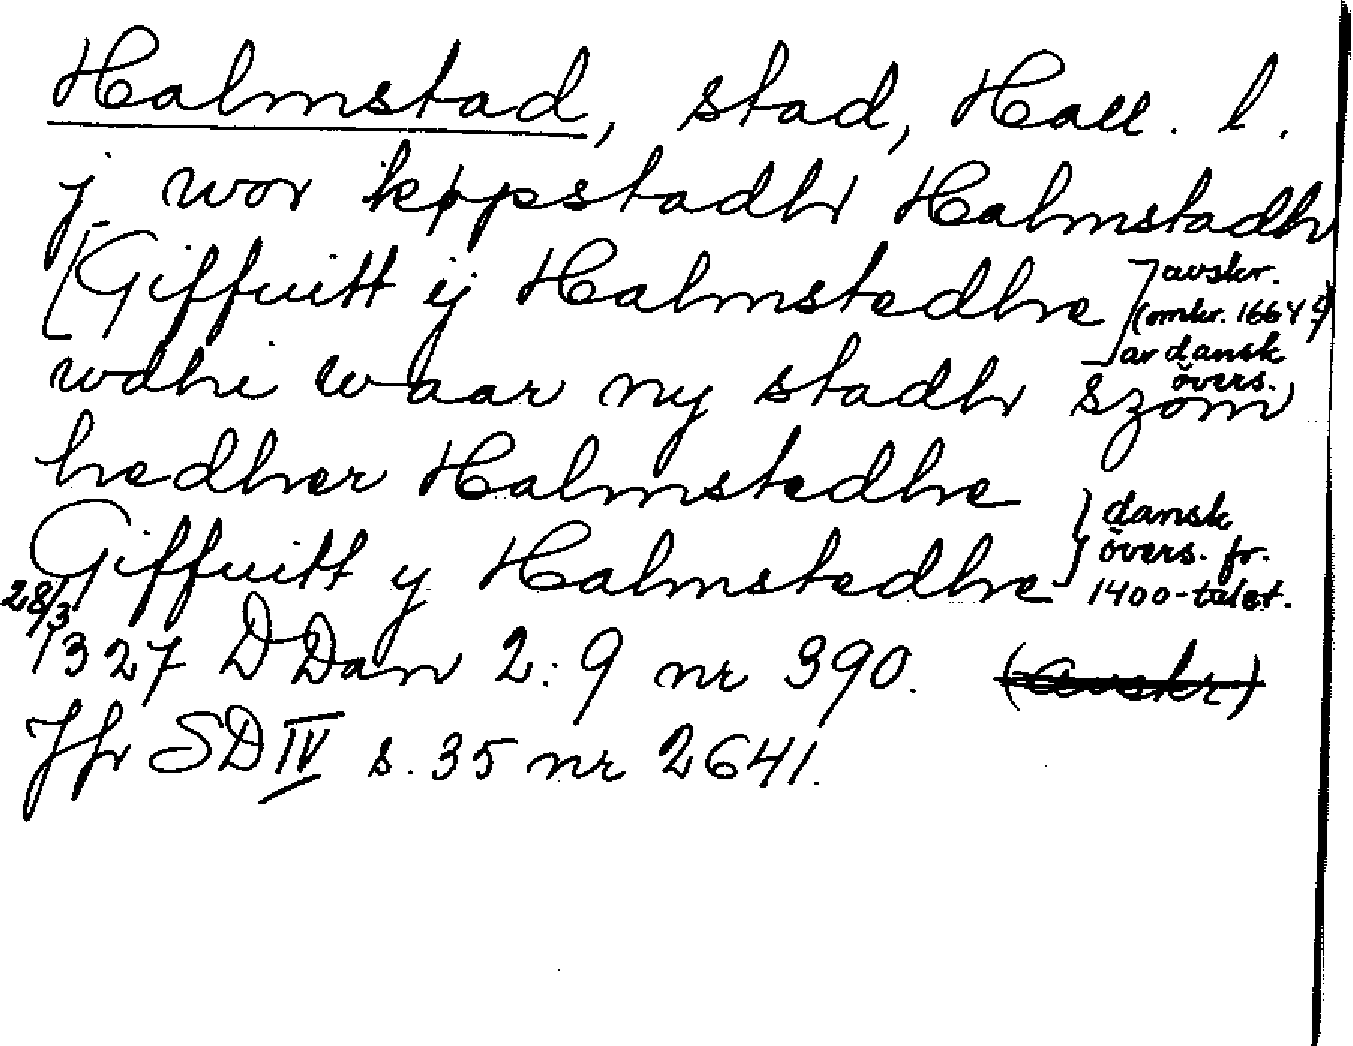 Halmstad, stad, Hall. l.
j wor køpstadhr Halmstadhr
[Giffuitt ij Halmstedhe] avskr. (omkr. 1664?) av dansk övers.
wdhi waar ny stadhr szom
hedher Halmstedhe
Giffuitt y Halmstedhe } dansk övers. fr. 1400-talet.
28/3 1327 DDan 2:9 nr 390. (avskr)
Jfr SD IV s. 35 nr 2641.